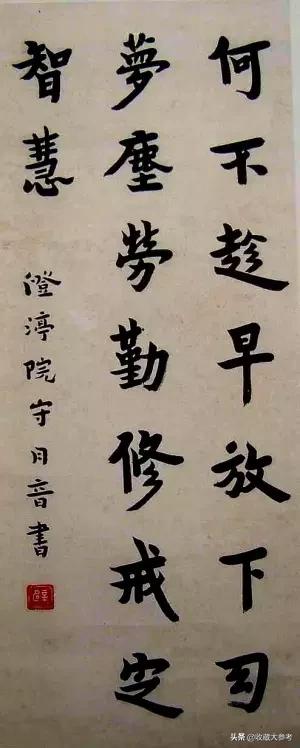 何不趁早放下幻
夢塵勞勤修戒定
智慧
澄渟院守月音書
头条 @收藏大参考